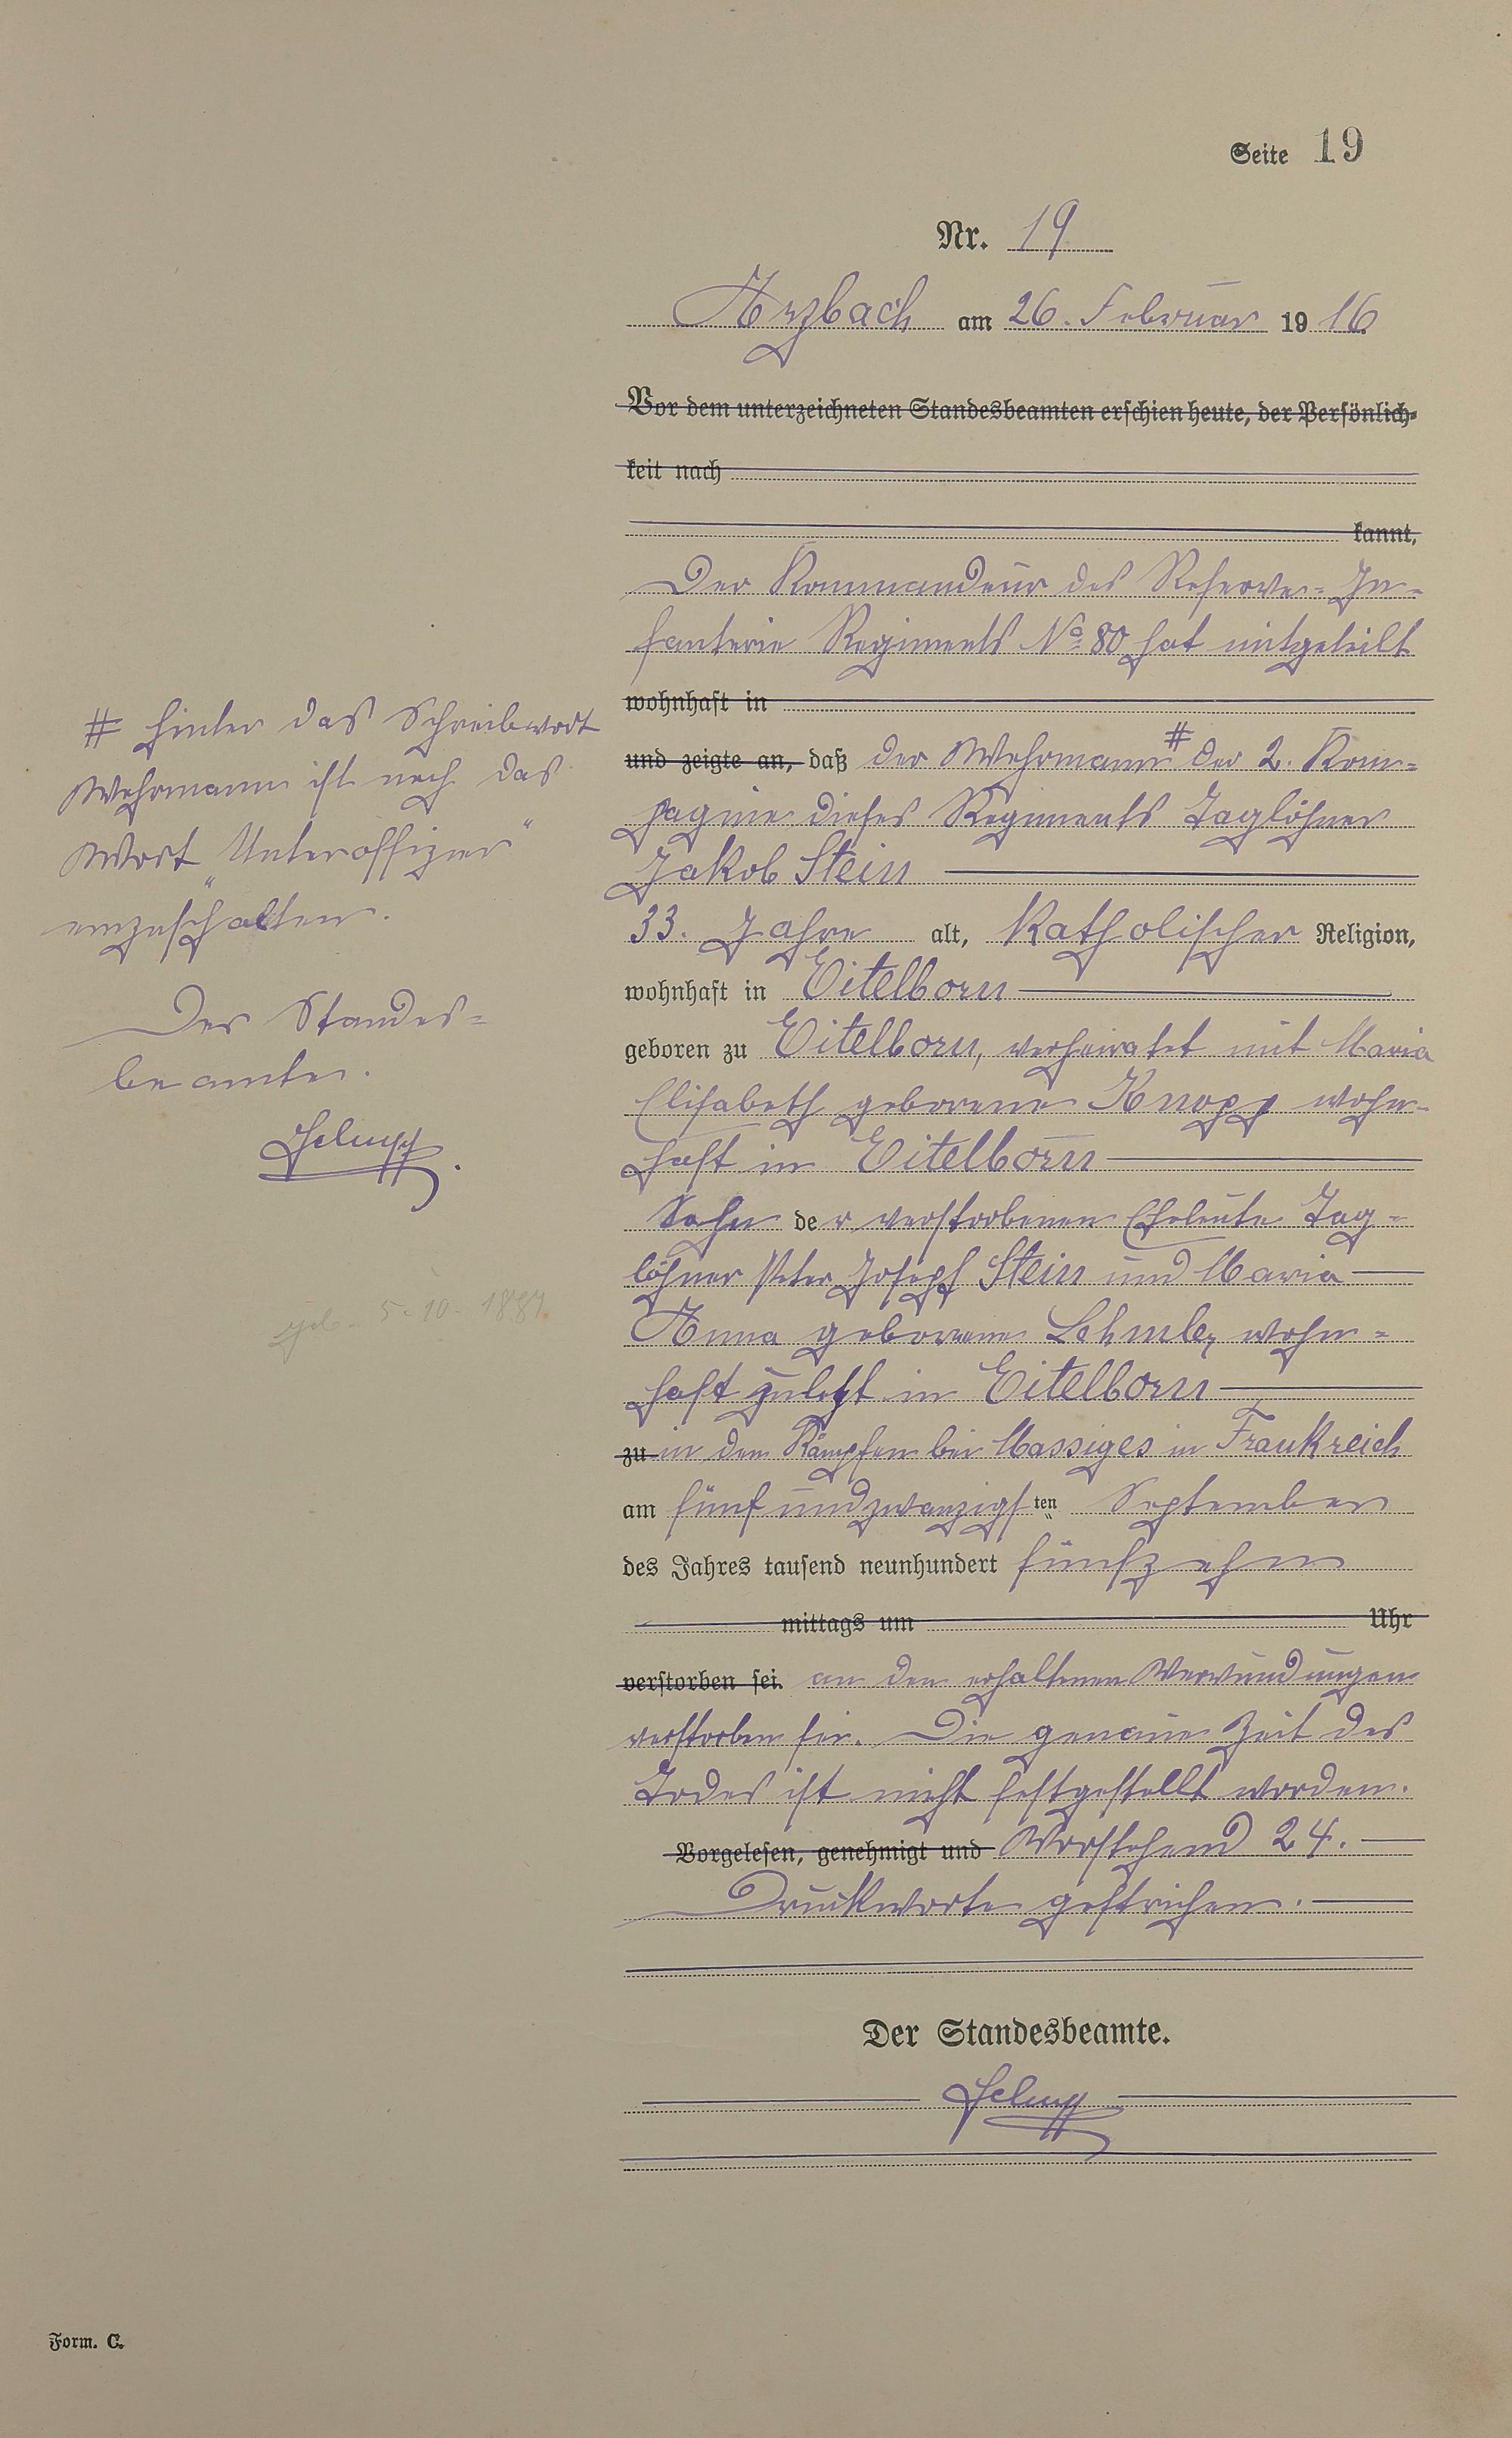 Seite 19
Nr. 19
Arzbach am 26. Februar 1916
Vor dem unterzeichneten Standesbeamten erschien heute, der Persönlich-
keit nach
kannt,
Der Kommandeur des Reserve-In-
fanterie Regiments No 80 hat mitgeteilt
wohnhaft in
und zeigte an, daß der Wehrmann # der 2. Kom-
pagnie dieses Regiments Taglöhner
Jakob Stein
33. Jahre alt, katholischer Religion,
wohnhaft in Eitelborn
geboren zu Eitelborn, verheiratet mit Maria
Elisabeth geborene Knopp wohn-
haft in Eitelborn
Sohn der verstorbenen Eheleute Tag-
löhner Peter Joseph Stein und Maria
Anna geborene wohn-
haft zuletzt in Eitelborn
zu in den Kämpfen bei Massiges in Frankreich
am fünfundzwanzigsten September
des Jahres tausend neunhundert fünfzehn
mittags um Uhr
verstorben sei. an den erhaltenen Verwundungen
verstorben sei. Die genaue Zeit des
Todes ist nicht festgestellt worden.
Vorgelesen, genehmigt und Vorstehend 24.
Druckworte gestrichen.
Der Standesbeamte.
# Hinter das Schreibwort
Wehrmann ist noch das
Wort „Unteroffizier"
einzuschalten.
Der Standes-
beamte.
geb. 5.10.
Form. C.